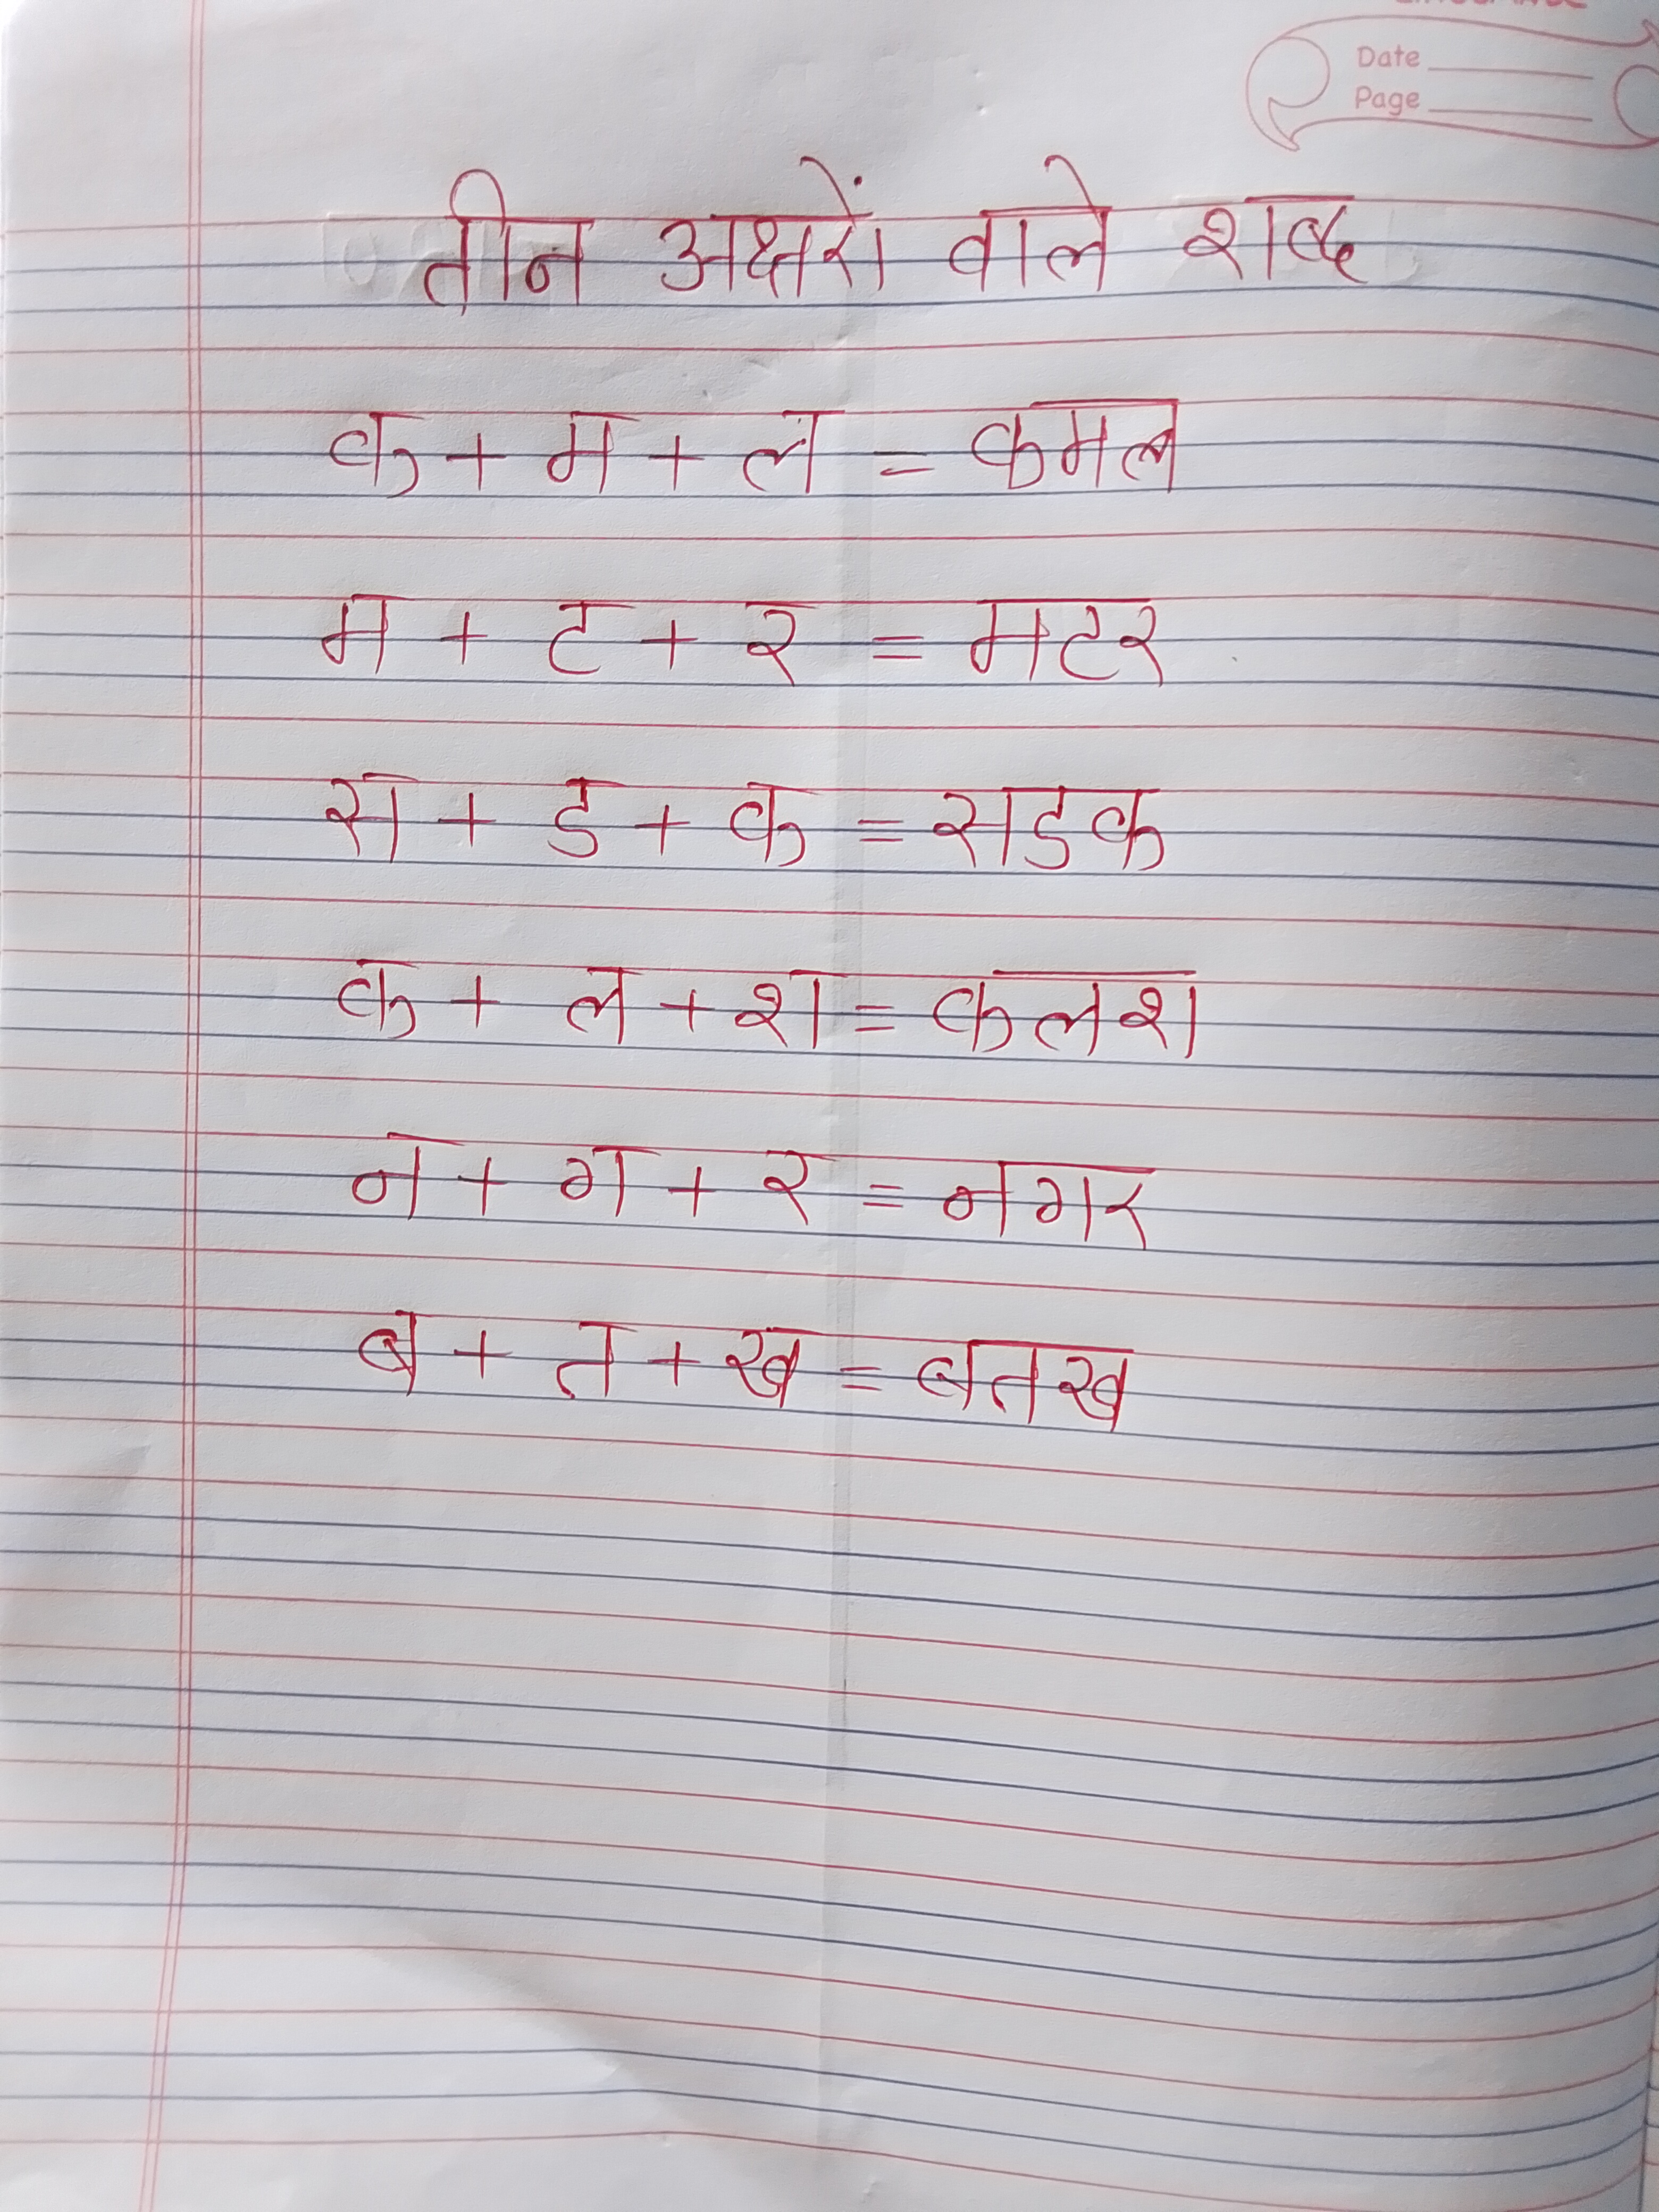 Date
Page
तीन अक्षरों वाले शब्द
क + म + ल = कमल
म + ट + र = मटर
स + ड + क = सडक
क + ल + श = कलश
न + ग + र = नगर
ब + त + ख = बतख